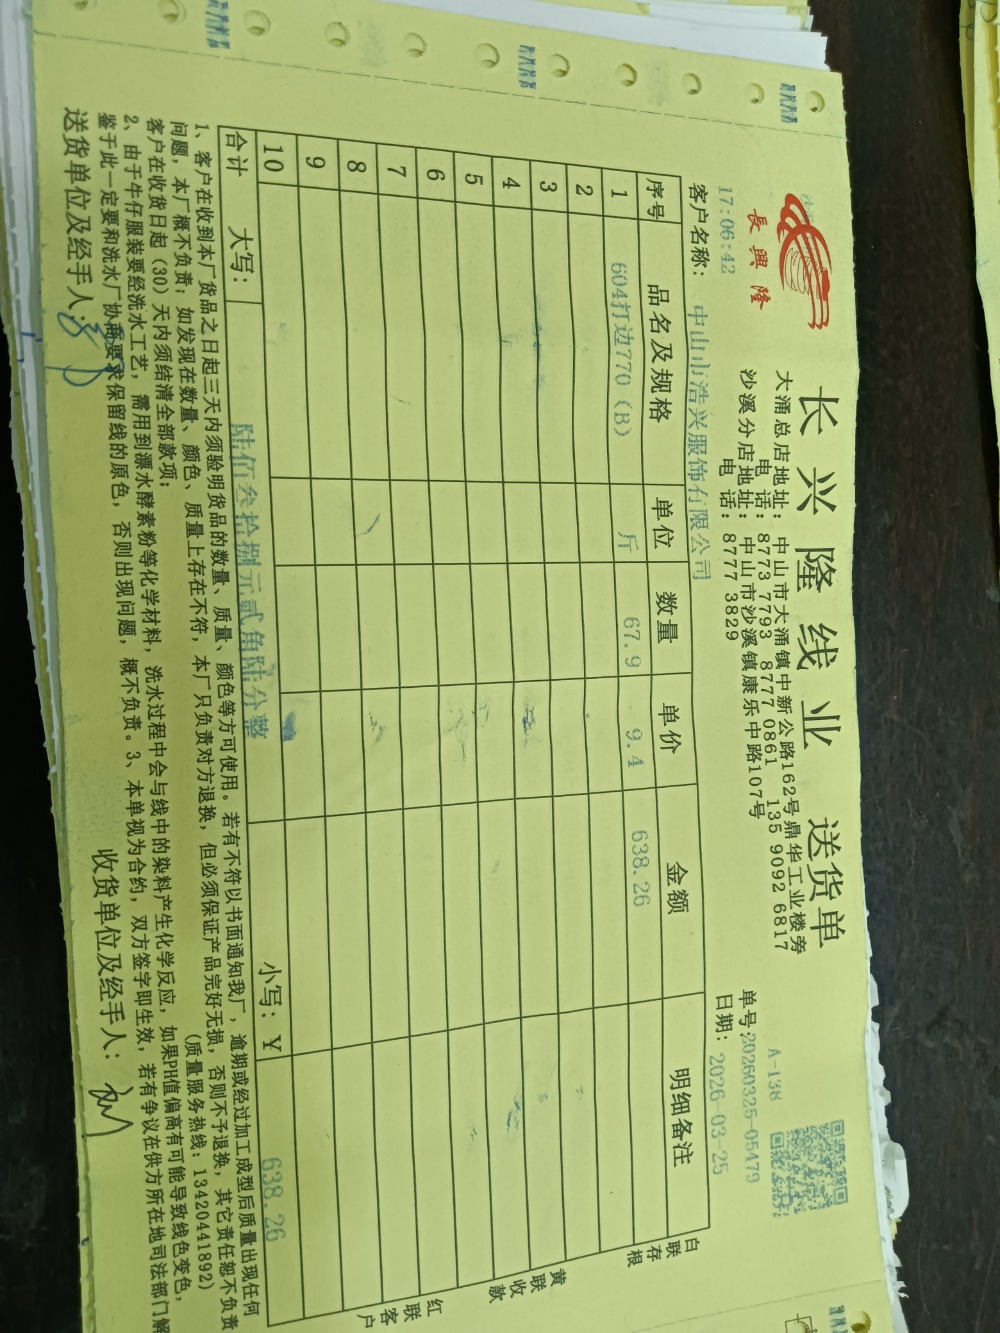 長興隆
长兴隆线业 送货单
大涌总店地址：中山市大涌镇中新公路162号鼎华工业楼旁
电 话：8773 7793 8777 0861 135 9092 6817
沙溪分店地址：中山市沙溪镇康乐中路107号
电 话：8777 3829
A-138
单号：20260325-05479
日期：2026-03-25
17:06:42
客户名称：中山市浩兴服饰有限公司
序号 品名及规格 单位 数量 单价 金额 明细备注
1 604打边770（B） 斤 67.9 9.4 638.26
2
3
4
5
6
7
8
9
10
合计 大写：陆佰叁拾捌元贰角陆分整 小写：¥ 638.26
白联存根
黄联收款
红联客户
1、客户在收到本厂货品之日起三天内须验明货品的数量、质量、颜色等方可使用。若有不符以书面通知我厂，逾期或经过加工成型后质量出现任何
问题，本厂概不负责；如发现在数量、颜色、质量上存在不符，本厂只负责对方退换，但必须保证产品完好无损，否则不予退换，其它责任恕不负责
客户在收货日起（30）天内须结清全部款项；（质量服务热线：13420441892）
2、由于牛仔服装要经洗水工艺，需用到漂水酵素粉等化学材料，洗水过程中会与线中的染料产生化学反应，如果PH值偏高有可能导致线色变色，
鉴于此一定要和洗水厂协商要求保留线的原色，否则出现问题，概不负责。3、本单视为合约，双方签字即生效，若有争议在供方所在地司法部门解
送货单位及经手人：
收货单位及经手人：